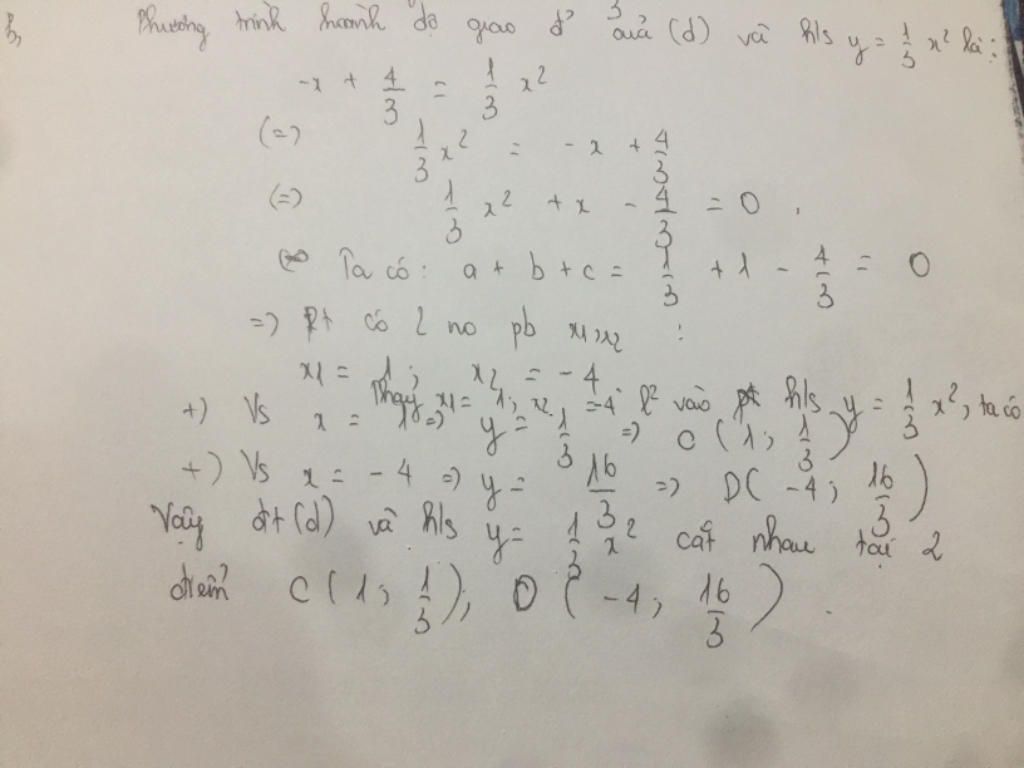 b, Phương trình hoành độ giao đ' của (d) và h/s y = 1/3 x² là:
-x + 4/3 = 1/3 x²
(=) 1/3 x² = -x + 4/3
(=) 1/3 x² + x - 4/3 = 0.
Ta có: a + b + c = 1/3 + 1 - 4/3 = 0
=) Pt có 2 no pb x1, x2 :
x1 = 1; x2 = -4
Thay x1 = 1; x2 = -4 vào pt h/s y = 1/3 x², ta có
+) Vs x = 1 => y = 1/3 => C (1; 1/3)
+) Vs x = -4 => y = 16/3 => D( -4; 16/3 )
Vậy đt (d) và h/s y = 1/3 x² cắt nhau tại 2
điểm C (1; 1/3); D ( -4; 16/3 ) .